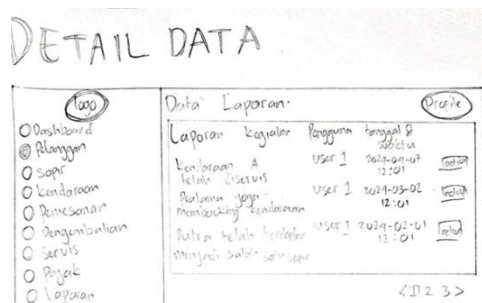 DETAIL DATA
logo
Dashboard
Pelanggan
Sopir
Kendaraan
Pemesanan
Pengembalian
Servis
Pajak
Laporan
Data Laporan.
Profile
Laporan Kegiatan Pengguna tanggal & waktu
Kendaraan A telah diservis user 1 12:01 action
Pratama yang membooking kendaraan user 1 2024-03-02 12:01 action
Putra telah terdaftar menjadi salah satu sopir user 1 2024-02-01 12:01 action
2 3 >